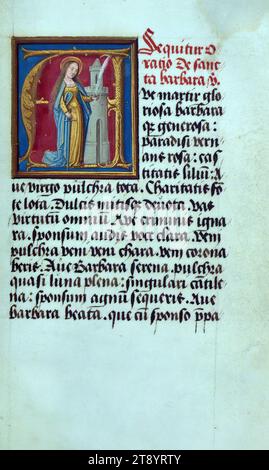 Sequitur o
ratio de sanc
ta barbara v̄.
ve martir glo
riosa barbara
q̄ȝ generosa:
paradisi ver
nans rosa: cas
titatis liliū. A
ue virgo pulchra tota. Charitatis fō
te lota. Dulcis mitisq̄ȝ deuota. vas
virtutū omniū. Aue criminis igna
ra. sponsum audis voce clara. veni
pulchra veni veni chara. veni corona
beris. Aue Barbara serena. pulchra
quasi luna plena: singulari cātile
na: sponsum agnū sequeris. Aue
barbara beata. que cū sponso ꝓpa
alamy
Image ID: 2T8YRTY
www.alamy.com